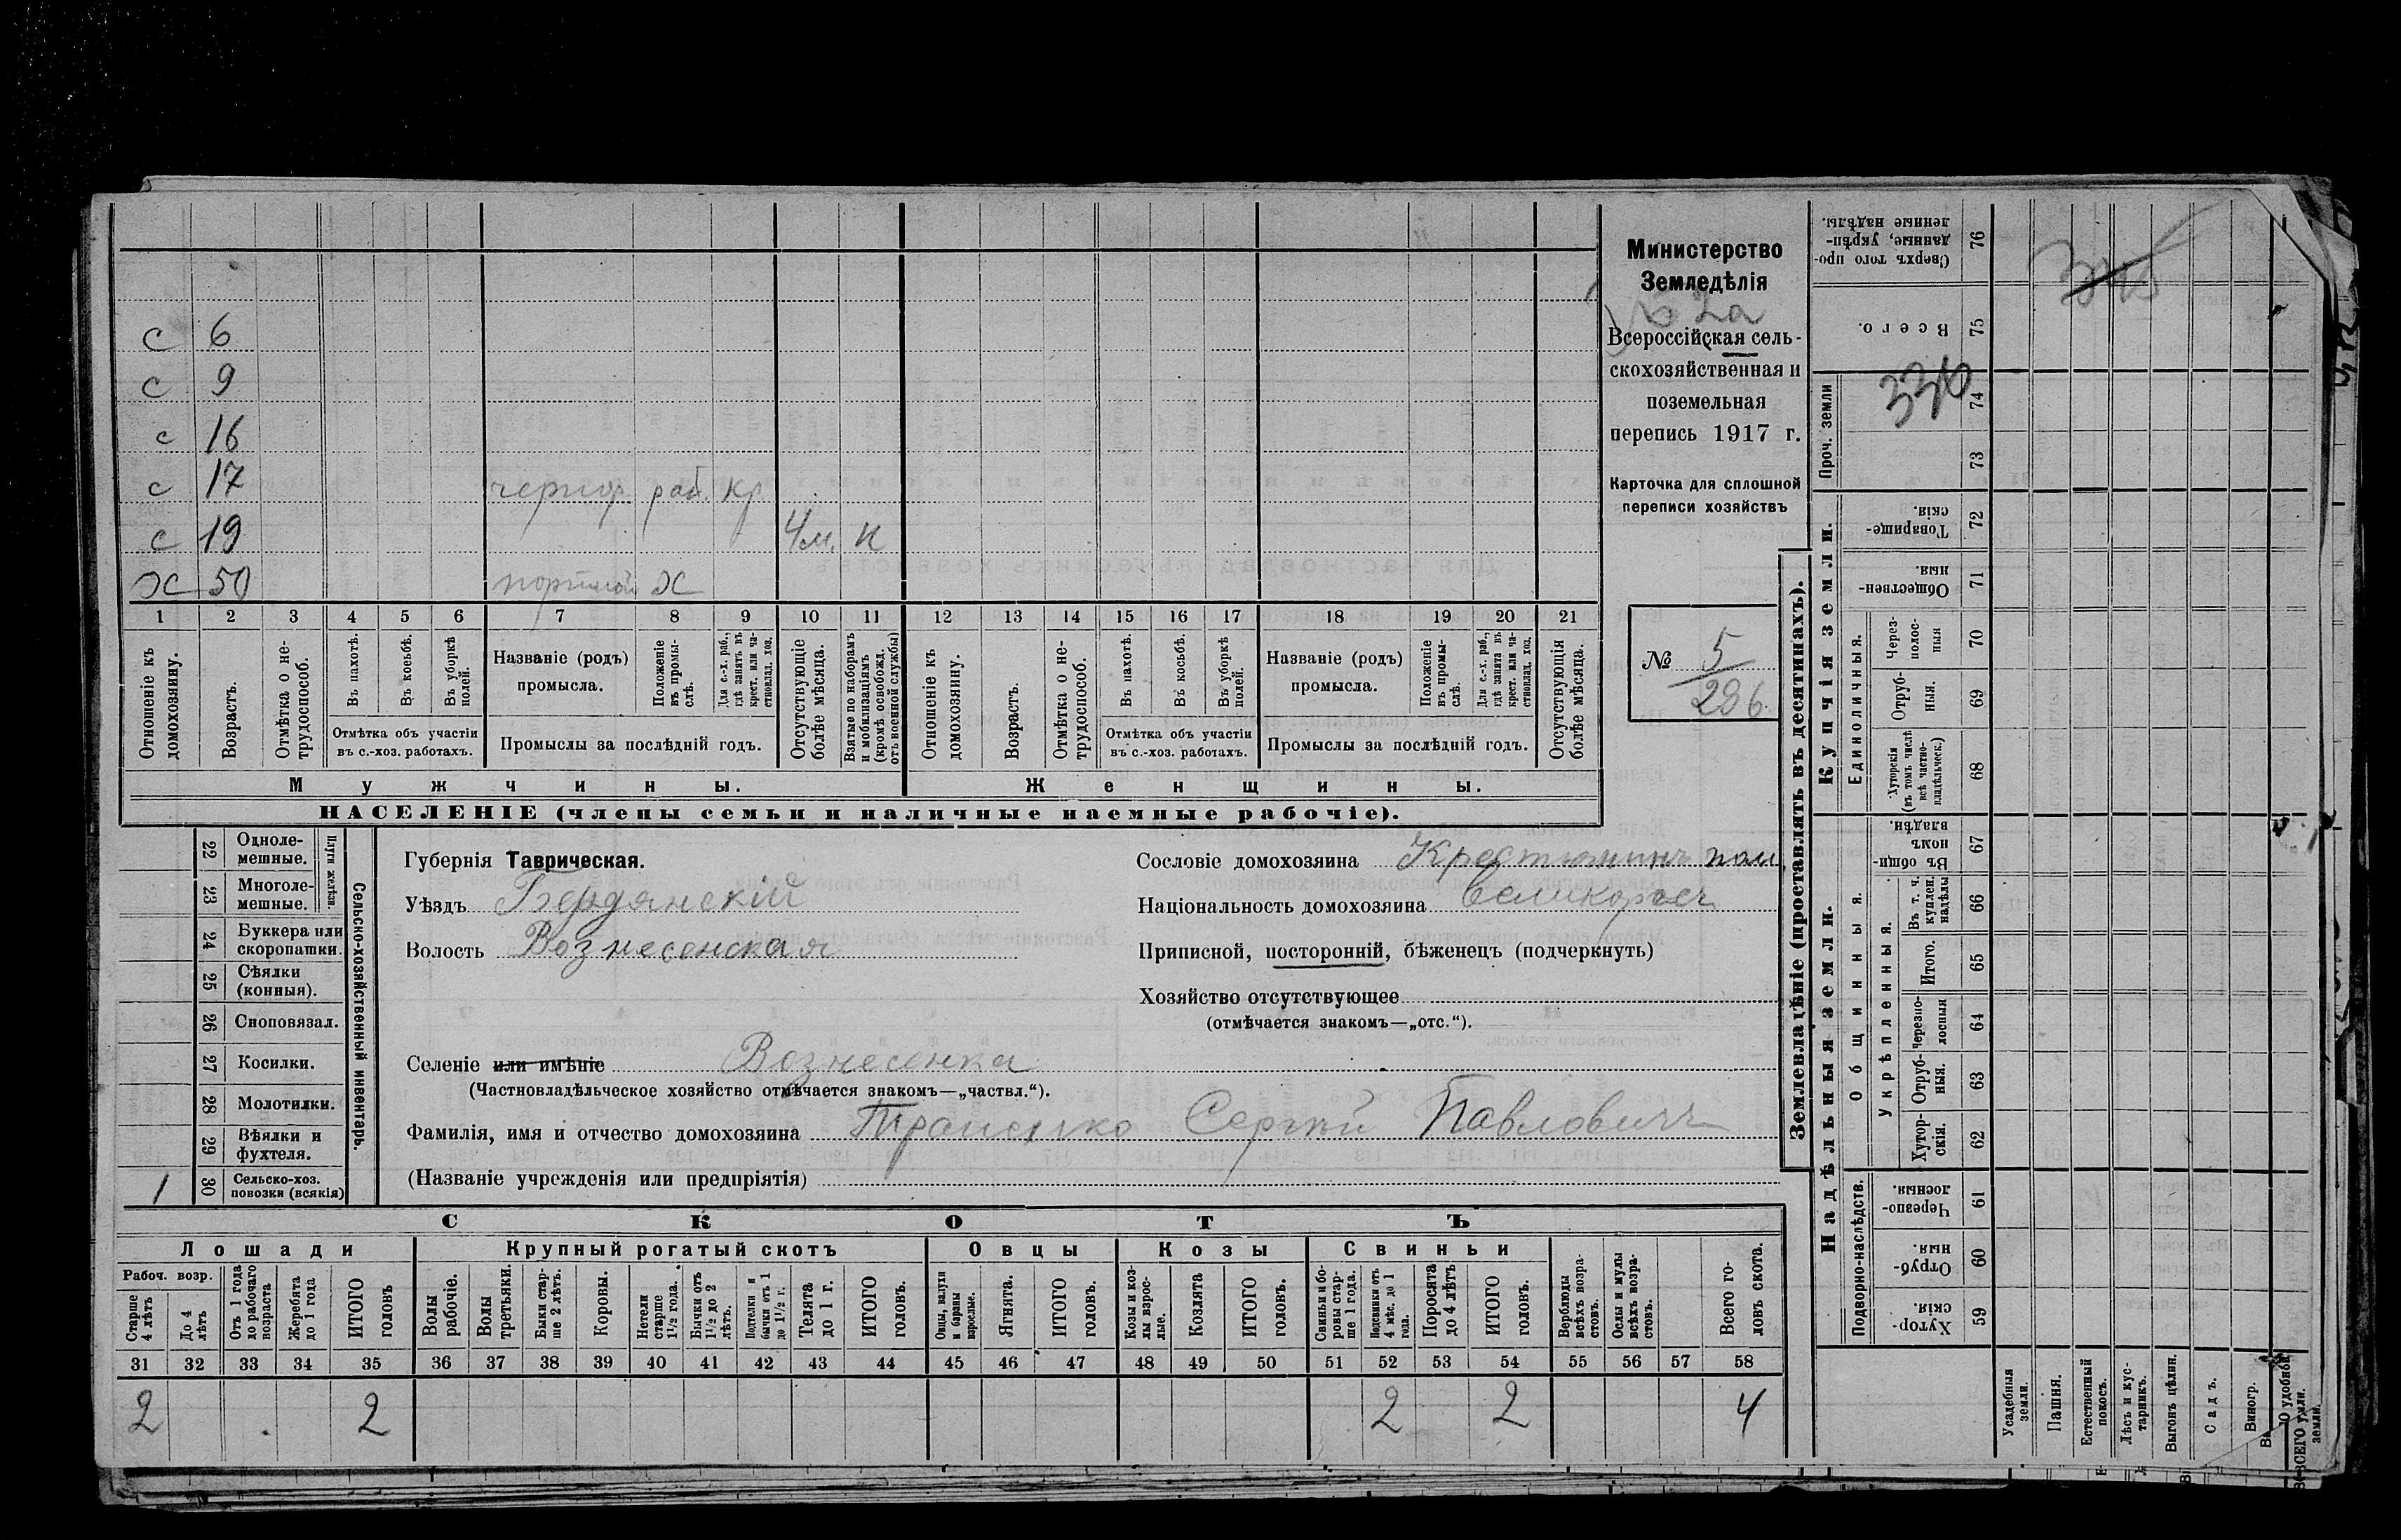 с 6
с 9
с 16
с 17 чернор. раб. кр.
с 19 4м. н
х 50 портной х
1 2 3 4 5 6 7 8 9 10 11 12 13 14 15 16 17 18 19 20 21
Отношеніе къ домохозяину.
Возрастъ.
Отмѣтка о не-
трудоспособ.
Въ пахотѣ.
Въ косьбѣ.
Въ уборкѣ
полей.
Отмѣтка объ участіи
въ с.-хоз. работахъ.
Названіе (родъ)
промысла.
Положеніе
въ промы-
слѣ.
Для с.-х. раб.,
гдѣ занятъ въ
крест. или ча-
стновлад. хоз.
Промыслы за послѣдній годъ.
Отсутствующіе
болѣе мѣсяца.
Взятые по наборамъ
и мобилизаціямъ
(кромѣ освобожд.
отъ военной службы)
Отношеніе къ
домохозяину.
Возрастъ.
Отмѣтка о не-
трудоспособ.
Въ пахотѣ.
Въ косьбѣ.
Въ уборкѣ
полей.
Отмѣтка объ участіи
въ с.-хоз. работахъ.
Названіе (родъ)
промысла.
Положеніе
въ промы-
слѣ.
Для с.-х. раб.,
гдѣ занята въ
крест. или ча-
стновлад. хоз.
Промыслы за послѣдній годъ.
Отсутствующія
болѣе мѣсяца.
Мужчины.
Женщины.
НАСЕЛЕНІЕ (члены семьи и наличные наемные рабочіе).
Министерство
Земледѣлія
2а
Всероссійская сель-
скохозяйственная и
поземельная
перепись 1917 г.
Карточка для сплошной
переписи хозяйствъ
№ 5
286
22 Одноле-
мешные.
23 Многоле-
мешные.
Плуги желѣзн.
24 Буккера или
скоропашки.
25 Сѣялки
(конныя).
26 Сноповязал.
27 Косилки.
28 Молотилки.
29 Вѣялки и
фухтеля.
1 30 Сельско-хоз.
повозки (всякія)
Сельско-хозяйственный инвентарь.
Губернія Таврическая.
Уѣздъ Бердянскій
Волость Вознесенская
Селеніе или имѣніе Вознесенка
(Частновладѣльческое хозяйство отмѣчается знакомъ—„частвл.“).
Фамилія, имя и отчество домохозяина Сергѣй Павловичъ
(Названіе учрежденія или предпріятія)
Сословіе домохозяина Крестьянинъ
Національность домохозяина великоросъ
Приписной, посторонній, бѣженецъ (подчеркнуть)
Хозяйство отсутствующее
(отмѣчается знакомъ—„отс.“).
СКОТЪ
Лошади
Крупный рогатый скотъ
Овцы
Козы
Свиньи
Рабоч. возр.
Старше
4 лѣтъ
До 4
лѣтъ
Отъ 1 года
до рабочаго
возраста
Жеребята
до 1 года
ИТОГО
головъ
Волы
рабочіе.
Волы
третьяки.
Быки стар-
ше 2 лѣтъ.
Коровы.
Нетели
старше
1½ года.
Бычки отъ
1½ до 2
лѣтъ.
Подтелки и
бычки отъ 1
до 1½ г.
Телята
до 1 г.
ИТОГО
головъ.
Овцы, валухи
и бараны
взрослые.
Ягнята.
ИТОГО
головъ.
Козы и коз-
лы взрос-
лые.
Козлята
ИТОГО
головъ.
Свиньи и бо-
ровы стар-
ше 1 года.
Подсвинки отъ
4 мѣс. до 1
года.
Поросята
до 4 лѣтъ
ИТОГО
головъ.
Верблюды
всѣхъ возра-
стовъ.
Ослы и мулы
всѣхъ возра-
стовъ.
Всего го-
ловъ скота.
31 32 33 34 35 36 37 38 39 40 41 42 43 44 45 46 47 48 49 50 51 52 53 54 55 56 57 58
2 2 2 2 4
Землевладѣніе (проставлять въ десятинахъ).
Купчія земли.
Надѣльныя земли.
Сверхъ того про-
данные, укрѣп-
ленные надѣлы.
76
Всего.
75
Проч. земли
74
73
Товарище-
скія.
72
Обществен-
ныя.
71
Единоличныя.
Через-
полос-
ныя
70
Отруб-
ныя.
69
Хуторскія
(въ томъ числѣ
всѣ частно-
владѣльческ.)
68
Общинныя.
Въ общин-
номъ
владѣн.
67
Укрѣпленныя.
Въ т. ч.
куплен.
надѣлы
66
Итого.
65
Черезпо-
лосныя
64
Отруб-
ныя.
63
Хутор-
скія.
62
Подворно-наслѣдств.
Черезпо-
лосныя.
61
Отруб-
ныя.
60
Хутор-
скія.
59
Усадебныя
земли.
Пашня.
Естественный
покосъ.
Лѣсъ и кус-
тарникъ.
Выгонъ цѣлин.
Садъ.
Виногр.